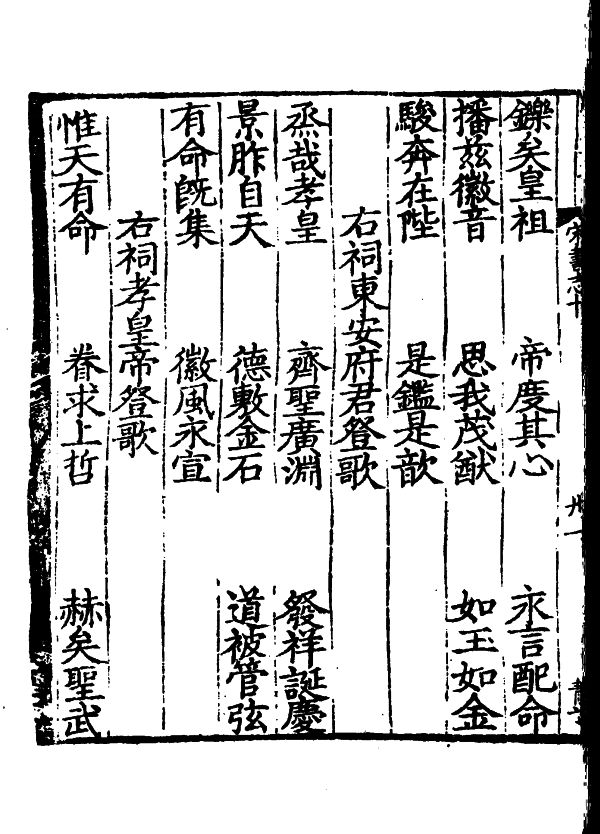 鑠矣皇祖　帝度其心　永言配命
播兹徽音　思我茂猷　如玉如金
駿奔在陛　是鑑是歆
右祠東安府君登歌
烝哉孝皇　齊聖廣淵　發祥誕慶
景胙自天　德敷金石　道被管弦
有命旣集　徽風永宣
右祠孝皇帝登歌
惟天有命　眷求上哲　赫矣聖武